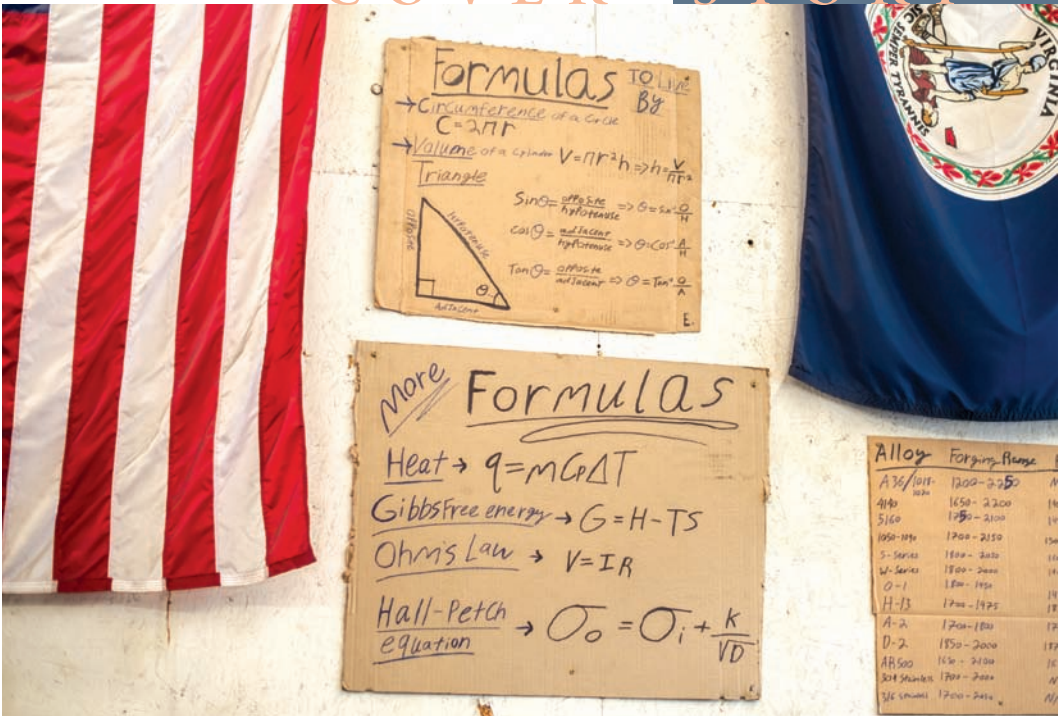 COVER STORY
SIC SEMPER TYRANNIS
VIRGINIA
Formulas TO Live
By
→Circumference of a circle
C=2πr
→Volume of a cylinder V=πr²h=>h=V/πr²
Triangle
opposite
hypotenuse
θ
Adjacent
Sinθ=opposite/hypotenuse => θ=Sin⁻¹ O/H
cosθ=adjacent/hypotenuse => θ=Cos⁻¹ A/H
Tanθ=opposite/adjacent => θ=Tan⁻¹ O/A
E.
More Formulas
Heat → q=mCpΔT
Gibbs Free energy → G=H-TS
Ohm's Law → V=IR
Hall-Petch
equation → σo = σi + K/√D
Alloy Forging Range
A36/1018-
1020 1200-2250
4140 1650-2200
5160 1750-2100
1050-1090 1700-2150
S-Series 1800-2050
W-Series 1800-2000
O-1 1800-1950
H-13 1700-1975
A-2 1700-1800
D-2 1850-2000
AR500 1650-2100
304 Stainless 1700-2000
316 stainless 1700-2050